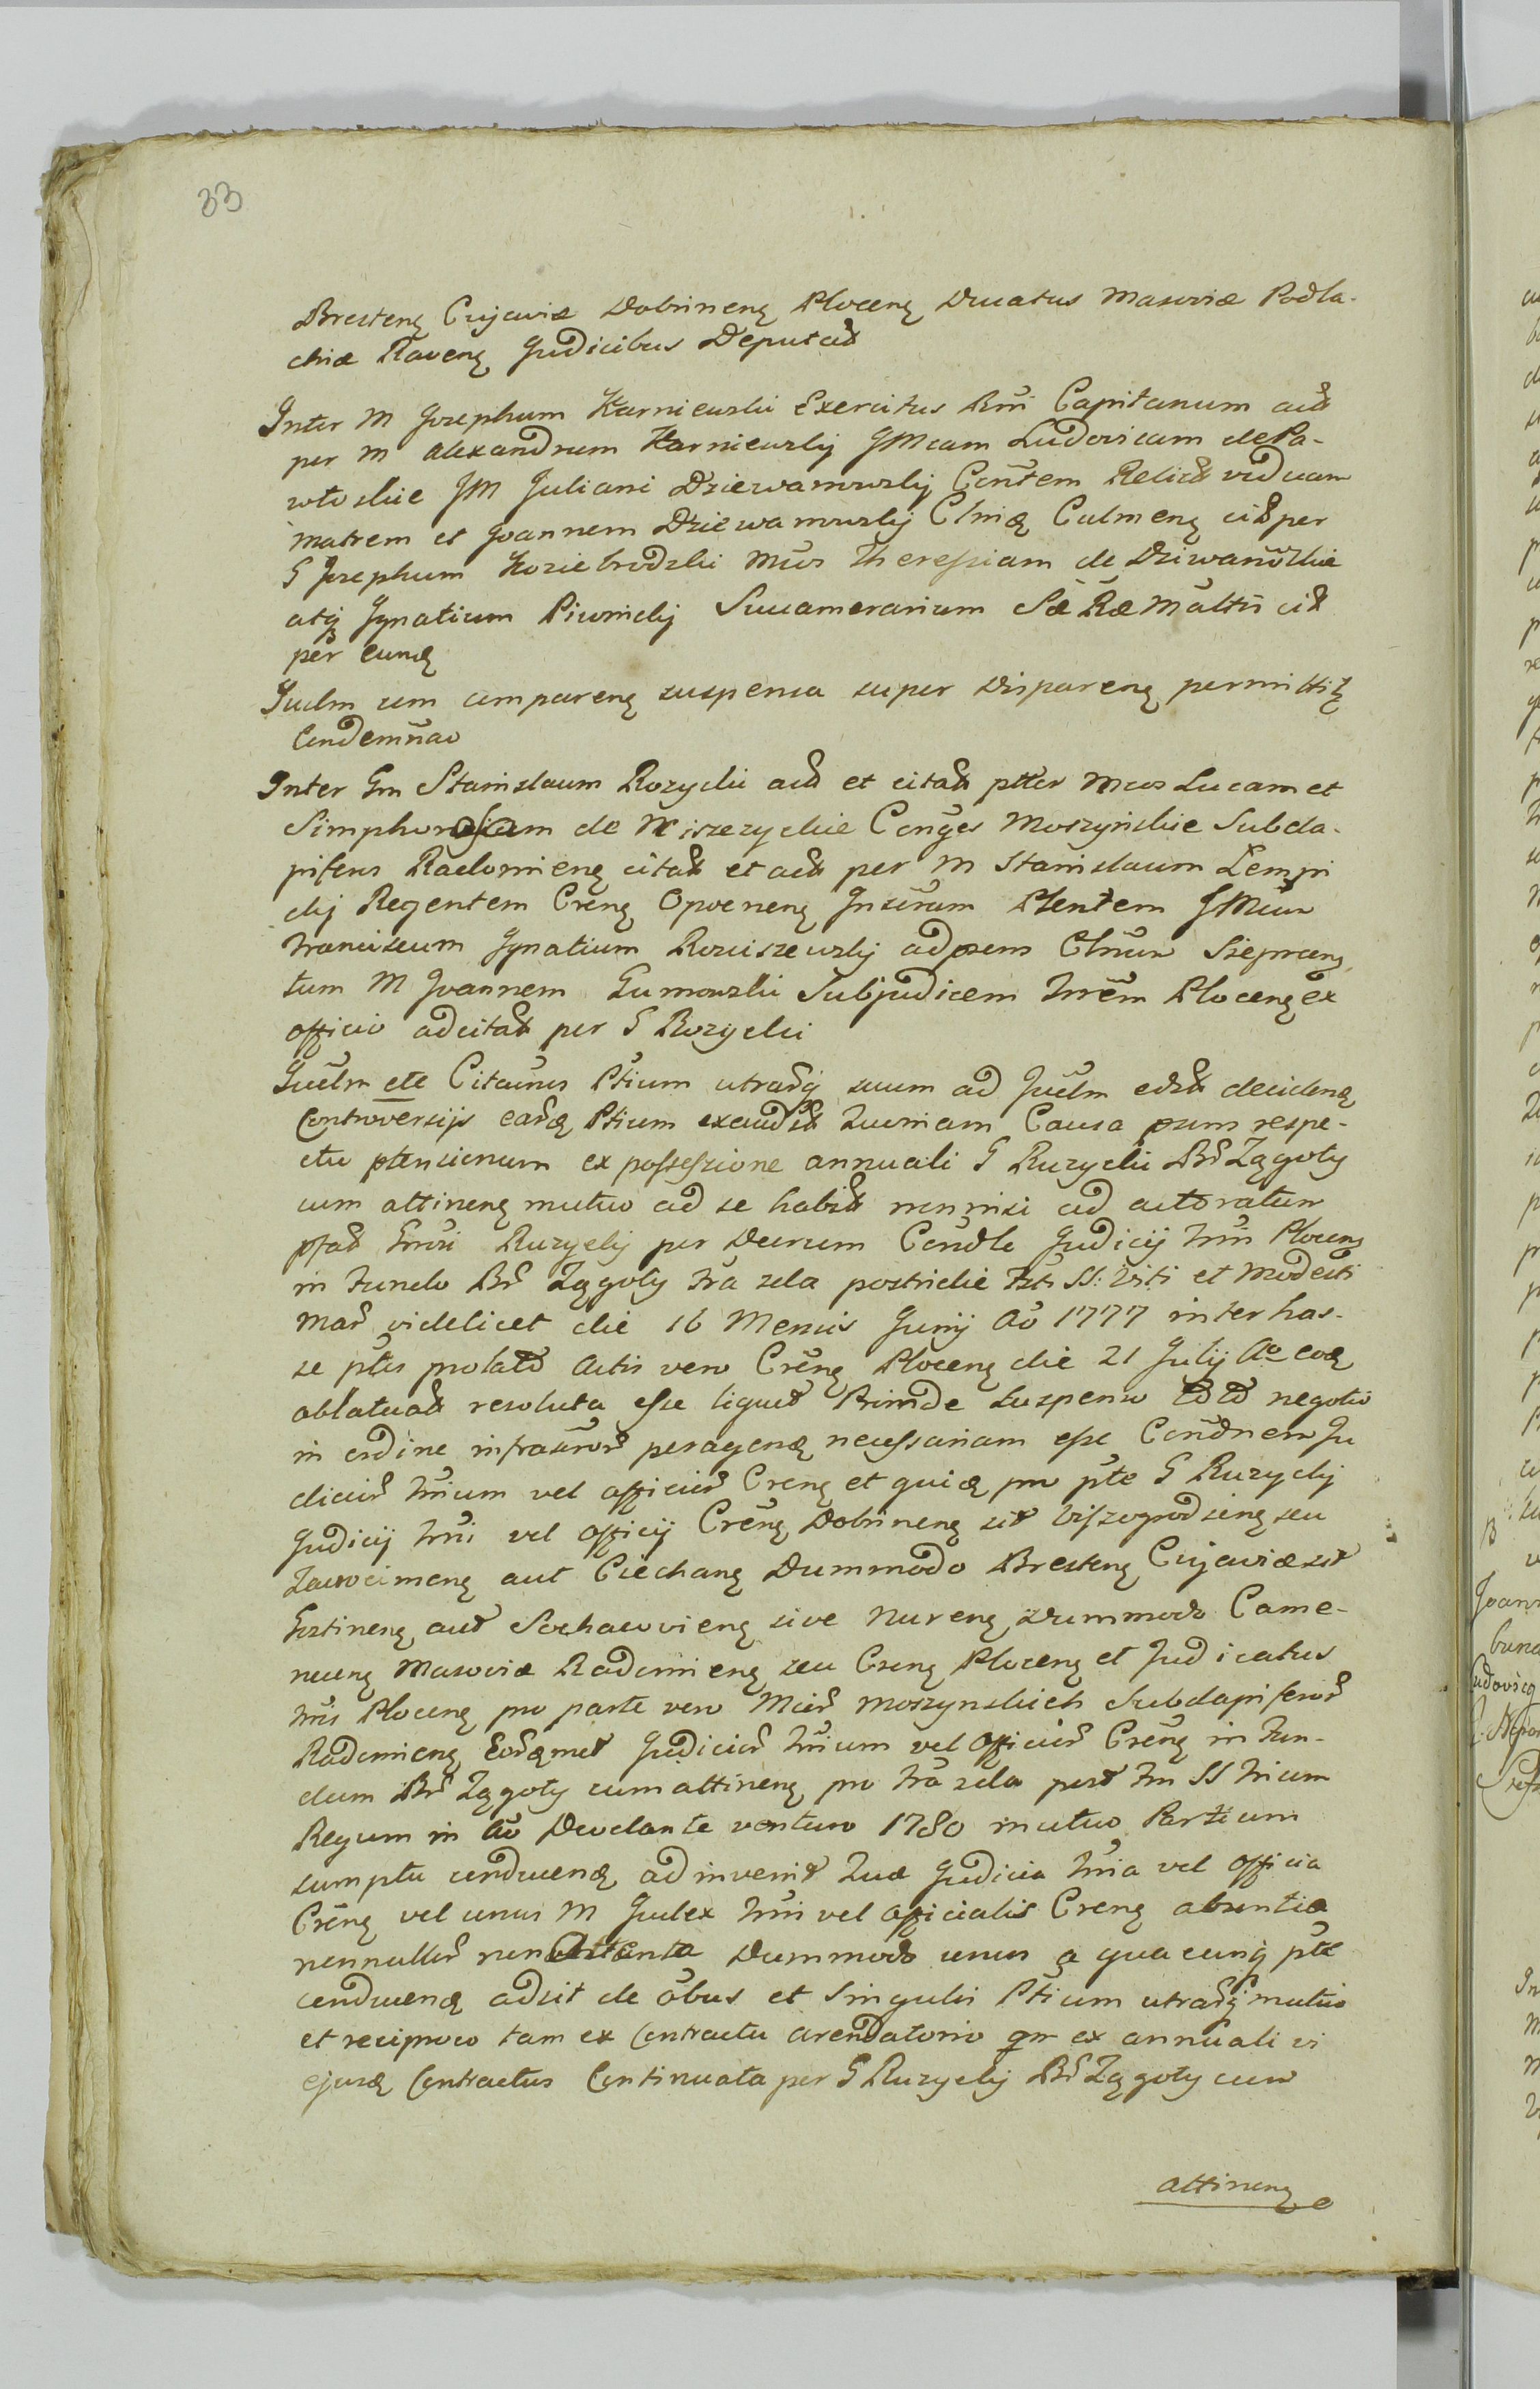 33
Bresteng Cujaviæ Dobrineng Ploceng Ducatus Masoviæ Podla-
chiæ Raveng Judicibus Deputat
Inter M Josephum Karniewski Exercitus Rni Capitanum act
per M Alexandrum Karniewskij GMcam Ludovicam de Pa-
włoskie GM Juliani Dziewanowskij Contem Relict viduam
matrem et Joannem Dziewanowskij Clnią Culmeng cit per
G Josephum Koziebrodzki Mcos Theressiam de Dziwanoskie
atq Ignatium Piwnickij Succamerarium Sæ Ræ Mattis cit
per eund
Judm cum compareng suspensa super dispareng permittit
Condemnao
Inter Gm Stanislaum Rozycki act et citat ptter Mcos Lucam et
Simphorosam de Niszczyckie Conges Moszyńskie Subda-
piferos Radomieng citat et act per M Stanislaum Lempi
ckij Regentem Creng Opoceneng Inscrum Ptentem GMcum
Franciscum Ignatium Rosciszewskij adpsens Clnum Sieprceng
tum M Joannem Gumowski Subjudicem Trrem Ploceng ex
officio adcitat per G Rozycki
Judm ete Citaonis Ptium utrarq suum ad Judm edit decidend
Controversijs eard Ptium exaudit quoniam Causa psens respe-
ctu ptensionum ex possessione annuali G Ruzycki Br Zągoty
cum attineng mutuo ad se habit non nisi ad actoratum
pfat Gnrosi Ruzyckij per Decrum Condle Judicij Trrii Ploceng
in fundo Br Zągoty fra 2da postridie Fsti SS: Viti et Modesti
Mar videlicet die 16 Mensis Junij Ao 1777 inter has-
ce ptes prolato Actis vero Creng Ploceng die 21 Julij Ao eod
oblatuat resoluta esse liquet Proinde suspenso toto negotio
in ordine infrascror peragend necessariam esse Condnem Ju
dicior Trrium vel officior Creng et quid pro pte G Ruzyckij
Judicij Trrii vel Officij Creng Dobrineng sit Viszogrodieng seu
Zawcrineng aut Ciechang Dummodo Bresteng Cujaviæ sit
Gostineng aut Sochacovieng sive Nureng Dummodo Came-
neceng Masoviæ Radomieng seu Creng Ploceng et Judicatus
Trris Ploceng pro parte vero Mcor Moszynskich Subdapiferor
Radomieng Eordmet Judicior Trrium vel Officior Creng in fun-
dum Br Zągoty cum attineng pro fra 2da post Fm SS Trium
Regum in Ao Deo dante venturo 1780 mutuo Partium
sumptu conducend ad invenit Quæ Judicia Trria vel Officia
Creng vel unus M Judex Trrii vel Officialis Creng absentia
nonnullor non obstante Dummodo unus a quacunq pte
conducend adsit de obus et Singulis Ptium utrarq mutuo
et reciproco tam ex Contractu arendatorio qm ex annuali vi
ejusd Contractus Continuata per G Ruzyckij Br Zągoty cum
attineng